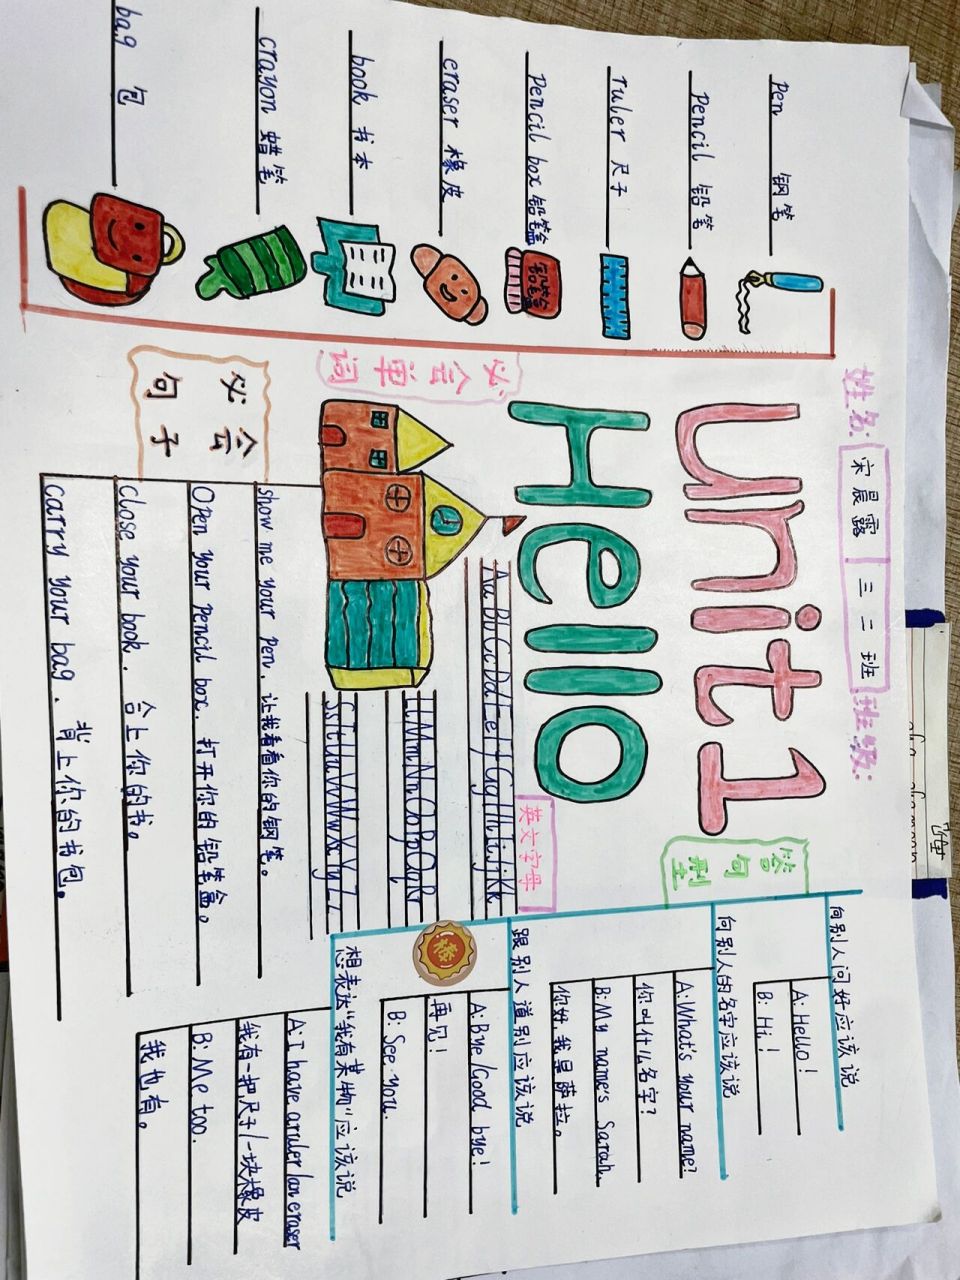 姓名: 宋晨露 三二班 班级:
unit1
Hello
pen 钢笔
pencil 铅笔
ruler 尺子
pencil box 铅笔盒
铅笔盒
eraser 橡皮
book 书本
crayon 蜡笔
bag 包
必会单词
英文字母
AaBbCcDdEeFfGgHhIiJjKk
LlMmNnOoPpQqRr
SsTtUuVvWwXxYyZz
必会
句子
show me your pen. 让我看看你的钢笔。
Open your pencil box. 打开你的铅笔盒。
close your book. 合上你的书。
carry your bag. 背上你的书包。
答句
向别人问好应该说
A: Hello!
B: Hi!
问别人的名字应该说
A: What's your name?
你叫什么名字?
B: My name's Sarah.
你好,我是萨拉。
跟别人道别应该说
A: Bye/Good bye!
再见!
B: See you.
棒
想表达"我有某物"应该说
A: I have a ruler/an eraser
我有一把尺子/一块橡皮
B: Me too.
我也有。